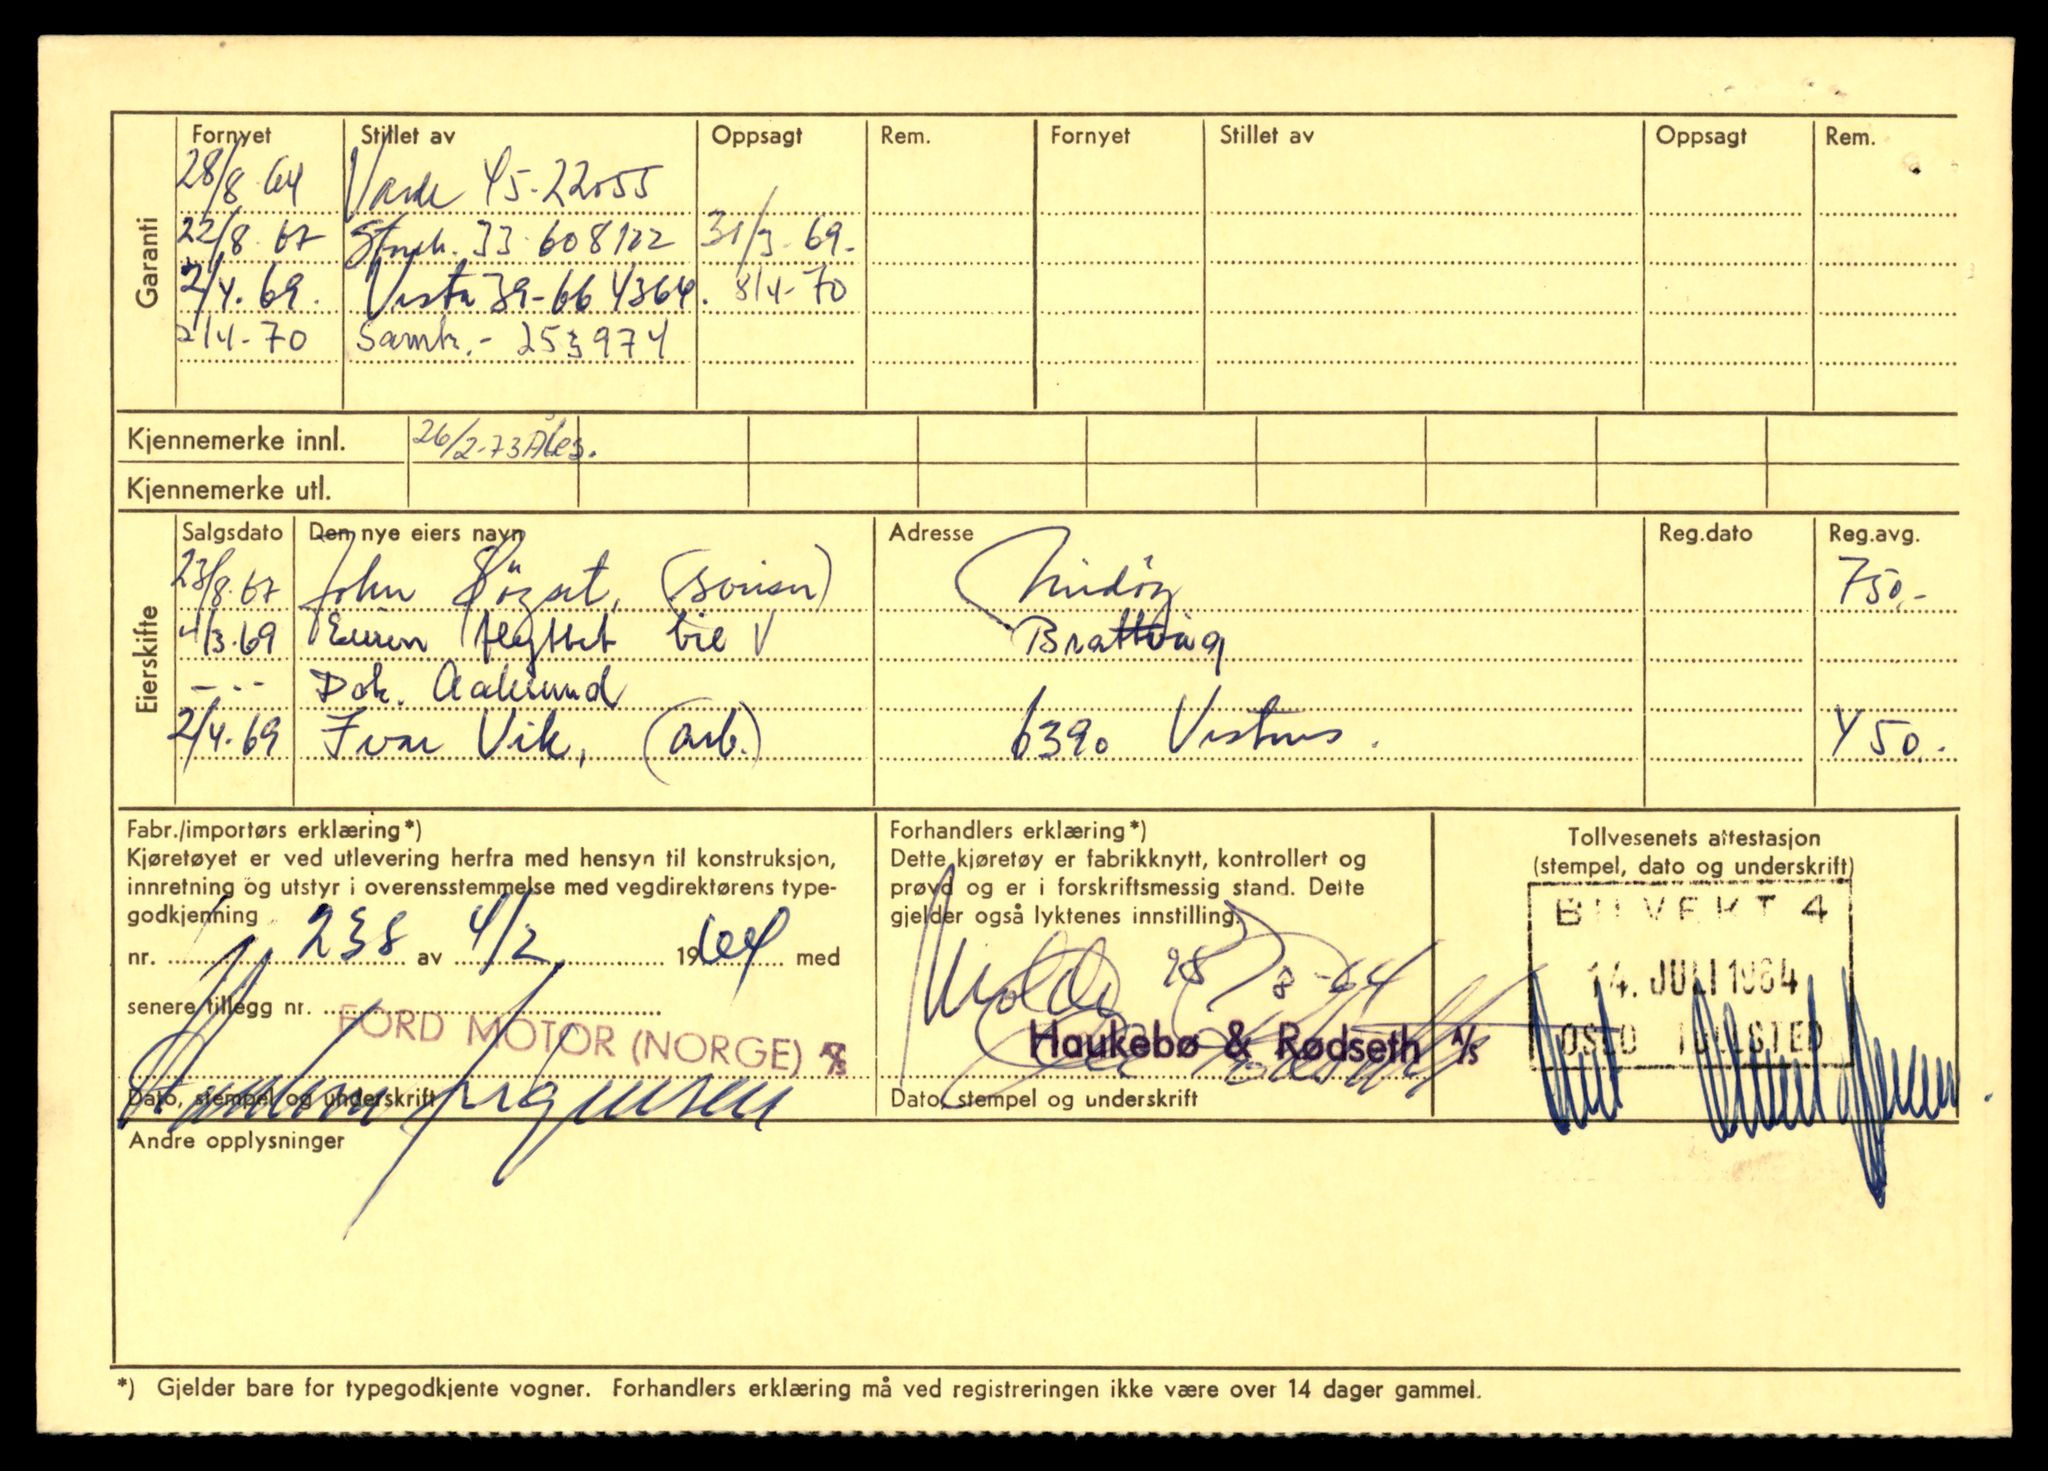 Fornyet Stillet av Oppsagt Rem. Fornyet Stillet av Oppsagt Rem.
Garanti
28/8.64 45-22055
22/8.67 Storeb. 33-608122 31/3.69.-
2/4.69. Vesta 39-664364. 8/4-70
2/4-70 Samtr.- 253974
Kjennemerke innl. 26/2-73 Åles.
Kjennemerke utl.
Eierskifte
Salgsdato Den nye eiers navn Adresse Reg.dato Reg.avg.
23/8.67 John Midöy 750.-
4/3.69 bil V Brattvåg
- .. - Dok. Aalesund
2/4.69 Ivar Vik, (arb.) 6390 Vestnes. 450.-
Fabr./importørs erklæring*)
Kjøretøyet er ved utlevering herfra med hensyn til konstruksjon,
innretning og utstyr i overensstemmelse med vegdirektørens type-
godkjenning
nr. 238 av 4/2 1964 med
senere tillegg nr.
FORD MOTOR (NORGE) A/S
Dato, stempel og underskrift
Forhandlers erklæring*)
Dette kjøretøy er fabrikknytt, kontrollert og
prøvd og er i forskriftsmessig stand. Dette
gjelder også lyktenes innstilling.
Molde 28/8-64
Haukebø & Rødseth A/S
Dato, stempel og underskrift
Tollvesenets attestasjon
(stempel, dato og underskrift)
BILVEKT 4
14. JULI 1964
OSLO TOLLSTED
Andre opplysninger
*) Gjelder bare for typegodkjente vogner. Forhandlers erklæring må ved registreringen ikke være over 14 dager gammel.